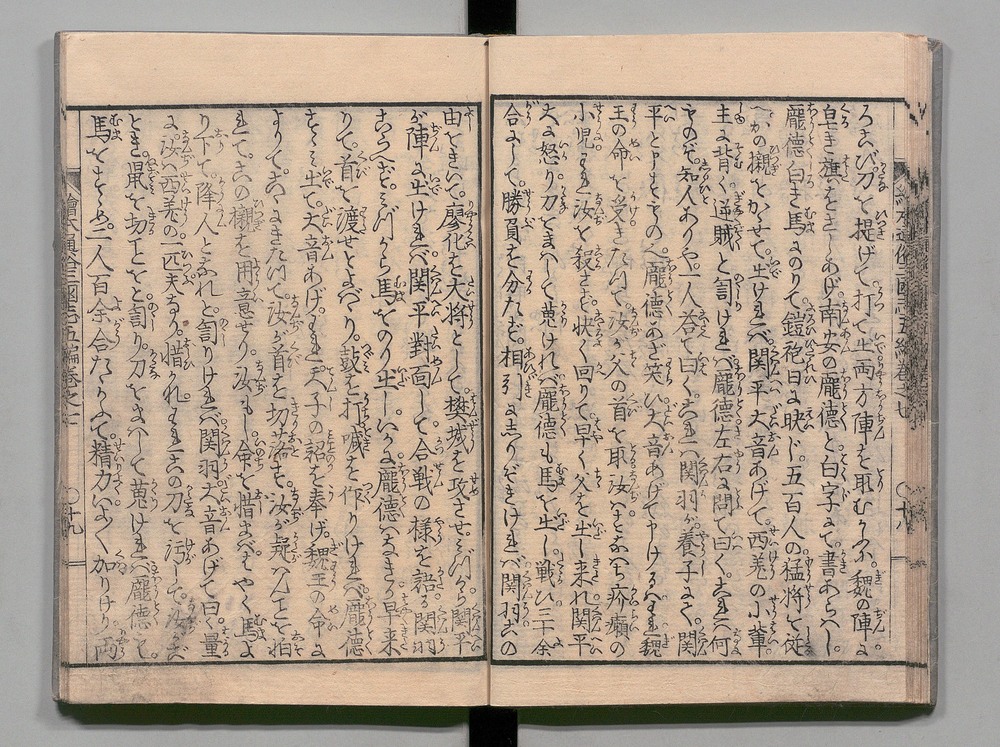 ろこび刀を提げて打て出両方陣を取むかふ。魏の陣に
皂き旗をさしあげ南安の龐德と白字にて書あらハし。
龐德白き馬にのりて鎧袍日に映じ。五百人の猛将を従
へかの櫬をかゝせて。出けれバ関平大音あげて。西羗の小輩
主に背く逆賊と罰けれバ龐德左右に問て曰く。これハ何
ものぞ。知人ありや。人荅て曰く。これハ関羽が養子にて。関
平と申ものく龐德あざ笑い大音あげて申けるハわれ魏
王の命を受きたつて。汝が父の首を取汝ハすなハち疥癩の
小児われ汝を殺さず快く回りて早く父を生し来れ関平
大に怒り刀をまハして蒐けれバ龐德も馬を出し戦ひ三十余
合にして。勝負を分たず。相引にしりぞきけれバ関羽この
由をきいて。廖化を大将として樊城を攻させ。ミづから関平
が陣に出けれバ関平對面して合戦の様を語る関羽
こらへず。ミづから馬をのり出し。いかに龐德ハなきか早来
りて。首を渡せとよバり。鼓を打喊を作りけれバ龐德
すゝミ出て。大音あげ。われ天子の詔を奉げ。魏王の命に
よりて。こゝにきたつて汝が首を切落す。汝が疑ハんことを怕
れて。この櫬を用意せり。汝もし命を惜まバ。はやく馬よ
り下て。降人となれと罰りけれバ関羽大音あげて曰く量
に。汝ハ西羗の一匹夫なり。惜われこの刀を汚して。汝がご
とき。鼠を切ことをと罰り。刀をまハして蒐けれバ龐德も。
馬をすゝめ。二人百余合たゝかふて。精力いよく加りけり。両
繪本通俗三國志五編巻之七
〇十八
繪本通俗三國志五編巻之七
〇十九